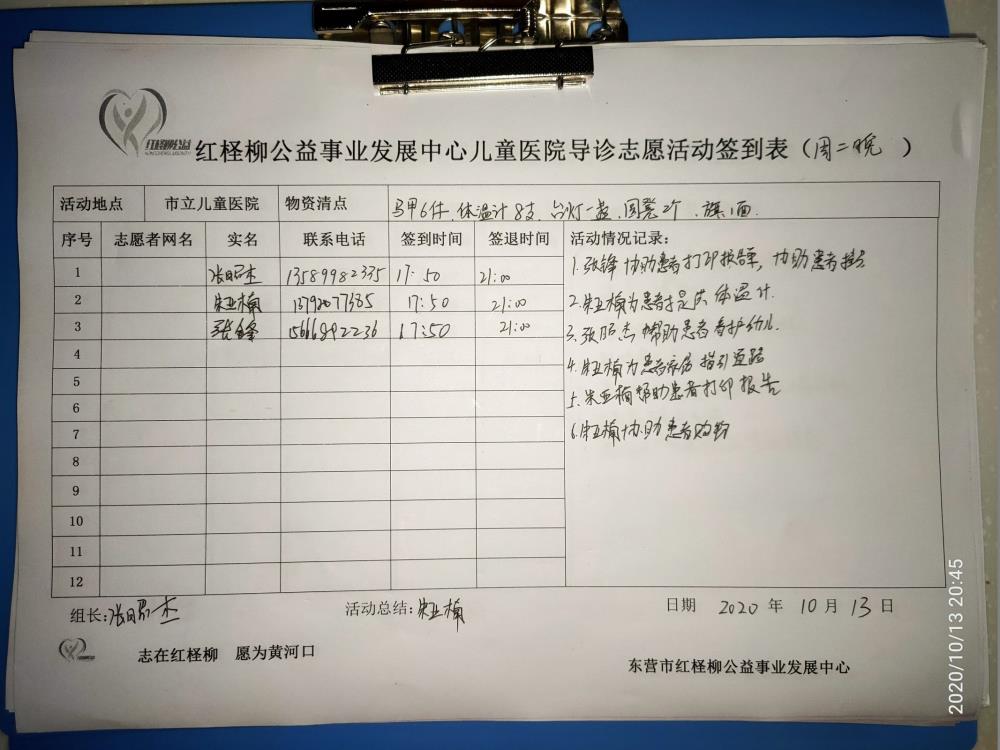 红柽柳公益
红柽柳公益事业发展中心儿童医院导诊志愿活动签到表（周二晚）
活动地点 市立儿童医院 物资清点 马甲6件、体温计8支、台灯一盏、圆凳2个、旗1面.
序号 志愿者网名 实名 联系电话 签到时间 签退时间 活动情况记录：
1 张昭杰 13589982335 17:50 21:00
2 朱亚楠 21:00 17:50
3 张锋 15666892236 17:50 21:00
4
5
6
7
8
9
10
11
12
1.张锋协助患者打印报告单，协助患者挂号
2.朱亚楠为患者提供体温计.
3.张昭杰帮助患者看护幼儿.
4.朱亚楠为患者家属指引道路
5.朱亚楠帮助患者打印报告
6.朱亚楠协助患者购物
组长：张昭杰 活动总结：朱亚楠 日期 2020 年 10 月 13 日
志在红柽柳 愿为黄河口
东营市红柽柳公益事业发展中心
2020/10/13 20:45